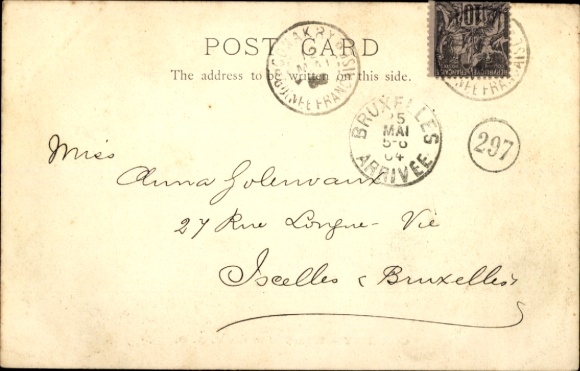 POST CARD
The address to be written on this side.
CONAKRY
GUINÉE FRANÇAISE
10
BRUXELLES
25
MAI
5-6
04
ARRIVÉE
297
Miss
Anna Golenvaux
27 Rue Longue-Vie
Ixcelles (Bruxelles)